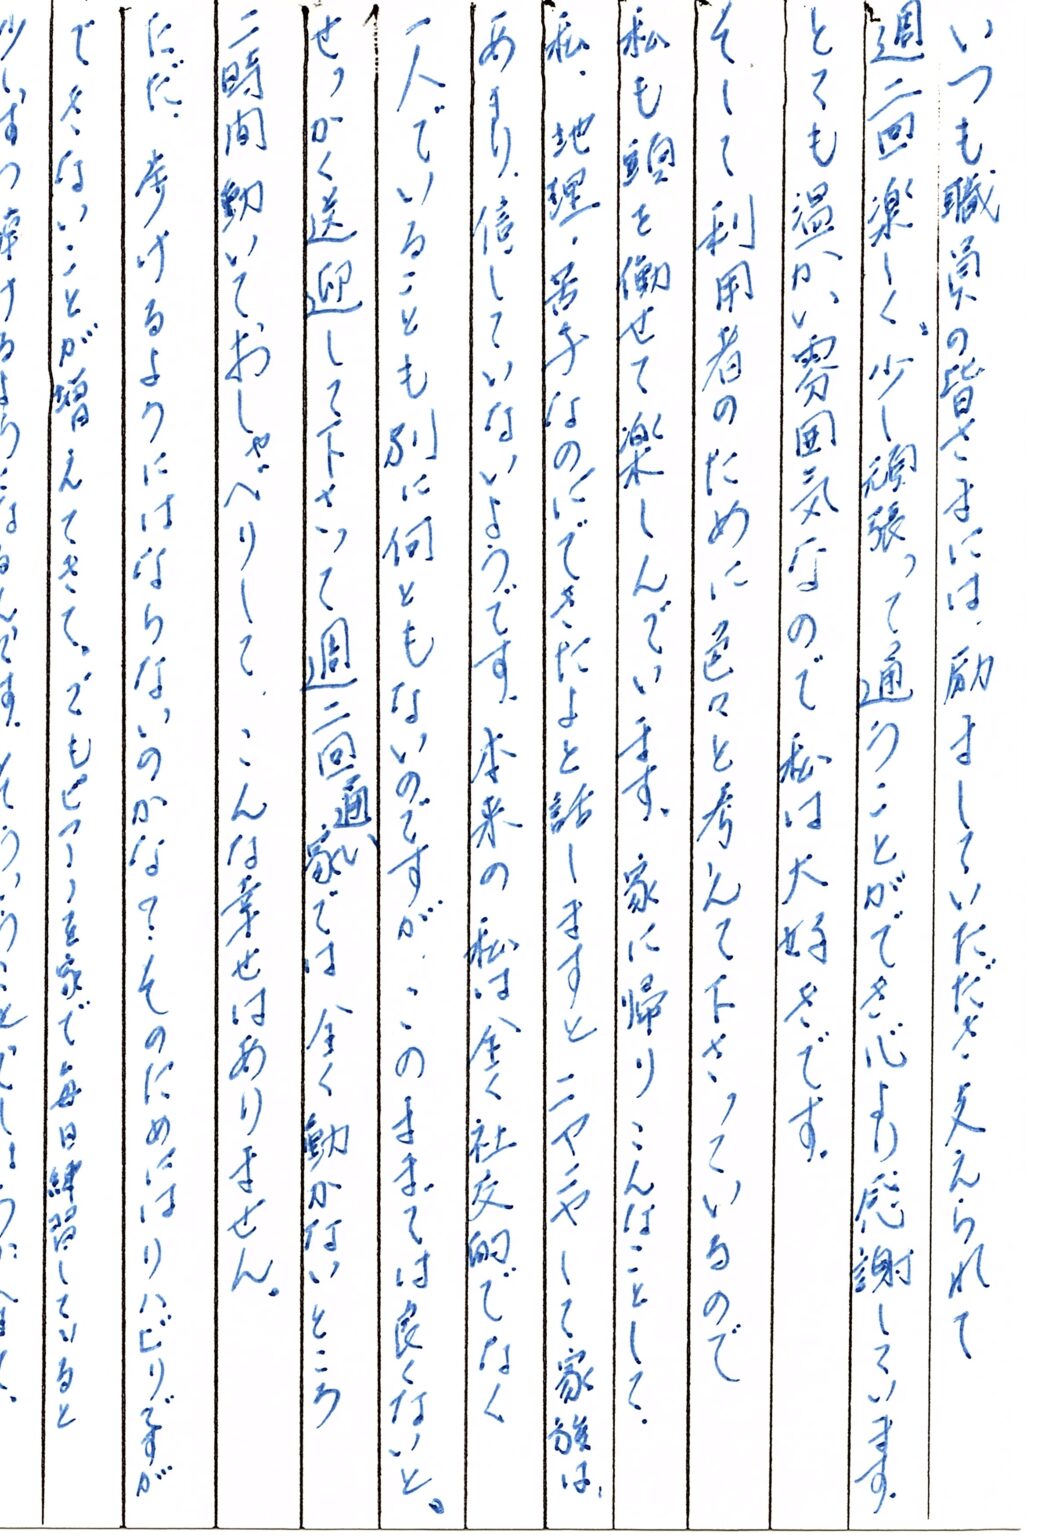 いつも職員の皆さまには、励ましていただき支えられて
週二回楽しく、少し頑張って通うことができ心より感謝しています。
とても温かい雰囲気なので私は大好きです。
そして利用者のために色々と考えて下さっているので
私も頭を働せて楽しんでいます。家に帰りこんなことして、
私、地理、苦手なのにできたよと話しますとニヤニヤして家族は、
あまり、信していないようです。本来の私は全く社交的でなく
一人でいることも別に何ともないのですが、このままでは良くないと。
せっかく送迎して下さって週二回通い家では全く動かないところ
二時間動いて、おしゃべりして、こんな幸せはありません。
ただ、歩けるようにはならないのかなて？そのためにはリハビリですが
できないことが増えてきて。でもピアノを家で毎日練習していると
少しずつ弾けるようになるんです。